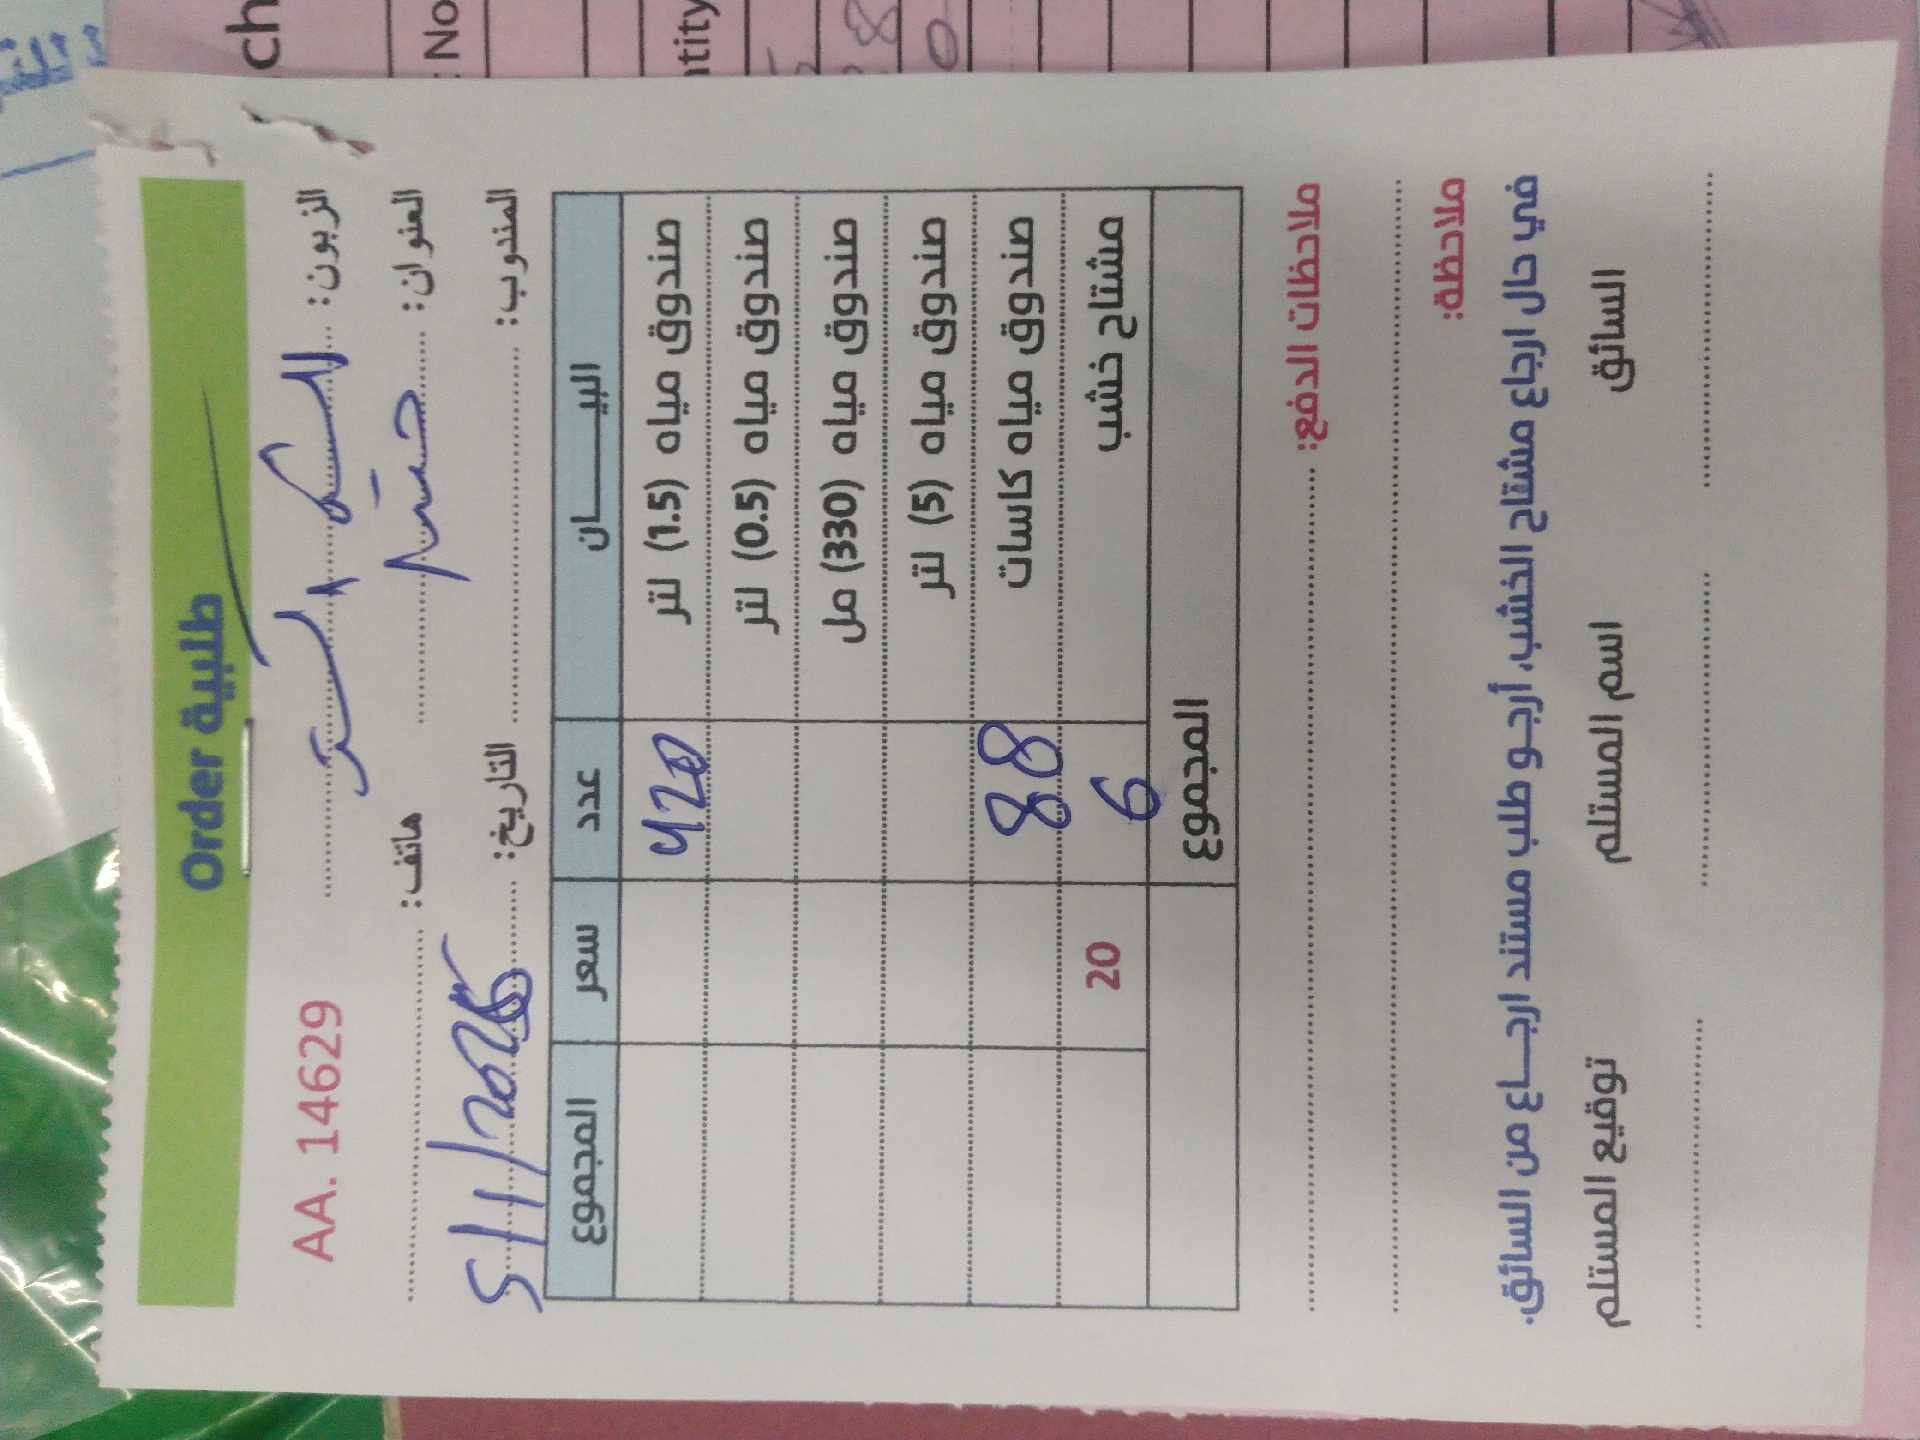 طلبية Order
الزبون: السكر السر AA. 14629
العنوان: هاتف:
المندوب: التاريخ: 5/1/2026
البيـــــان عدد سعر المجموع
صندوق مياه (1.5) لتر 420
صندوق مياه (0.5) لتر
صندوق مياه (330) مل
صندوق مياه (5) لتر
صندوق مياه كاسات 88
مشتاح خشب 6 20
المجموع
ملاحظات الدفع:
ملاحظة:
في حال ارجاع مشتاح الخشب، أرجو طلب مستند ارجـــاع من السائق.
السائق اسم المستلم توقيع المستلم
ch
: No
ntity